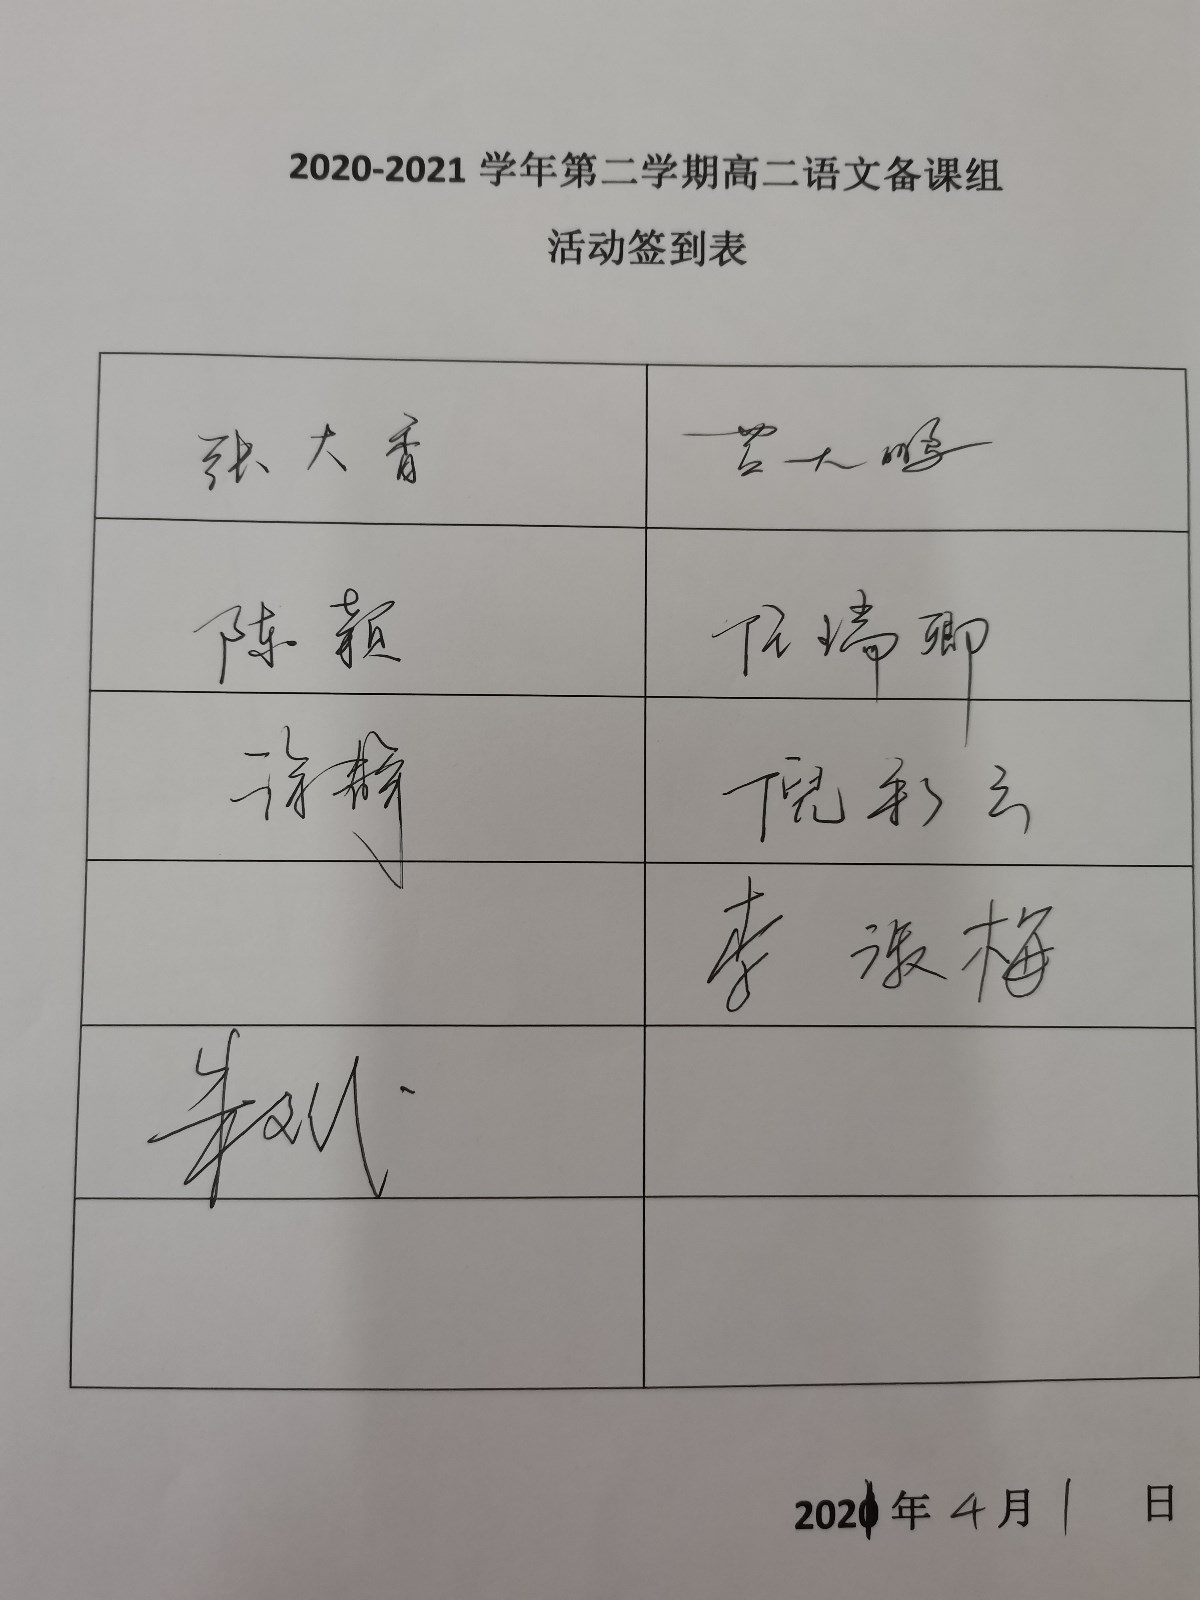 2020-2021 学年第二学期高二语文备课组
活动签到表
张大香
大鹏
陈颖
瑞卿
徐静
倪彩云
李淑梅
朱
2021 年 4 月 1 日